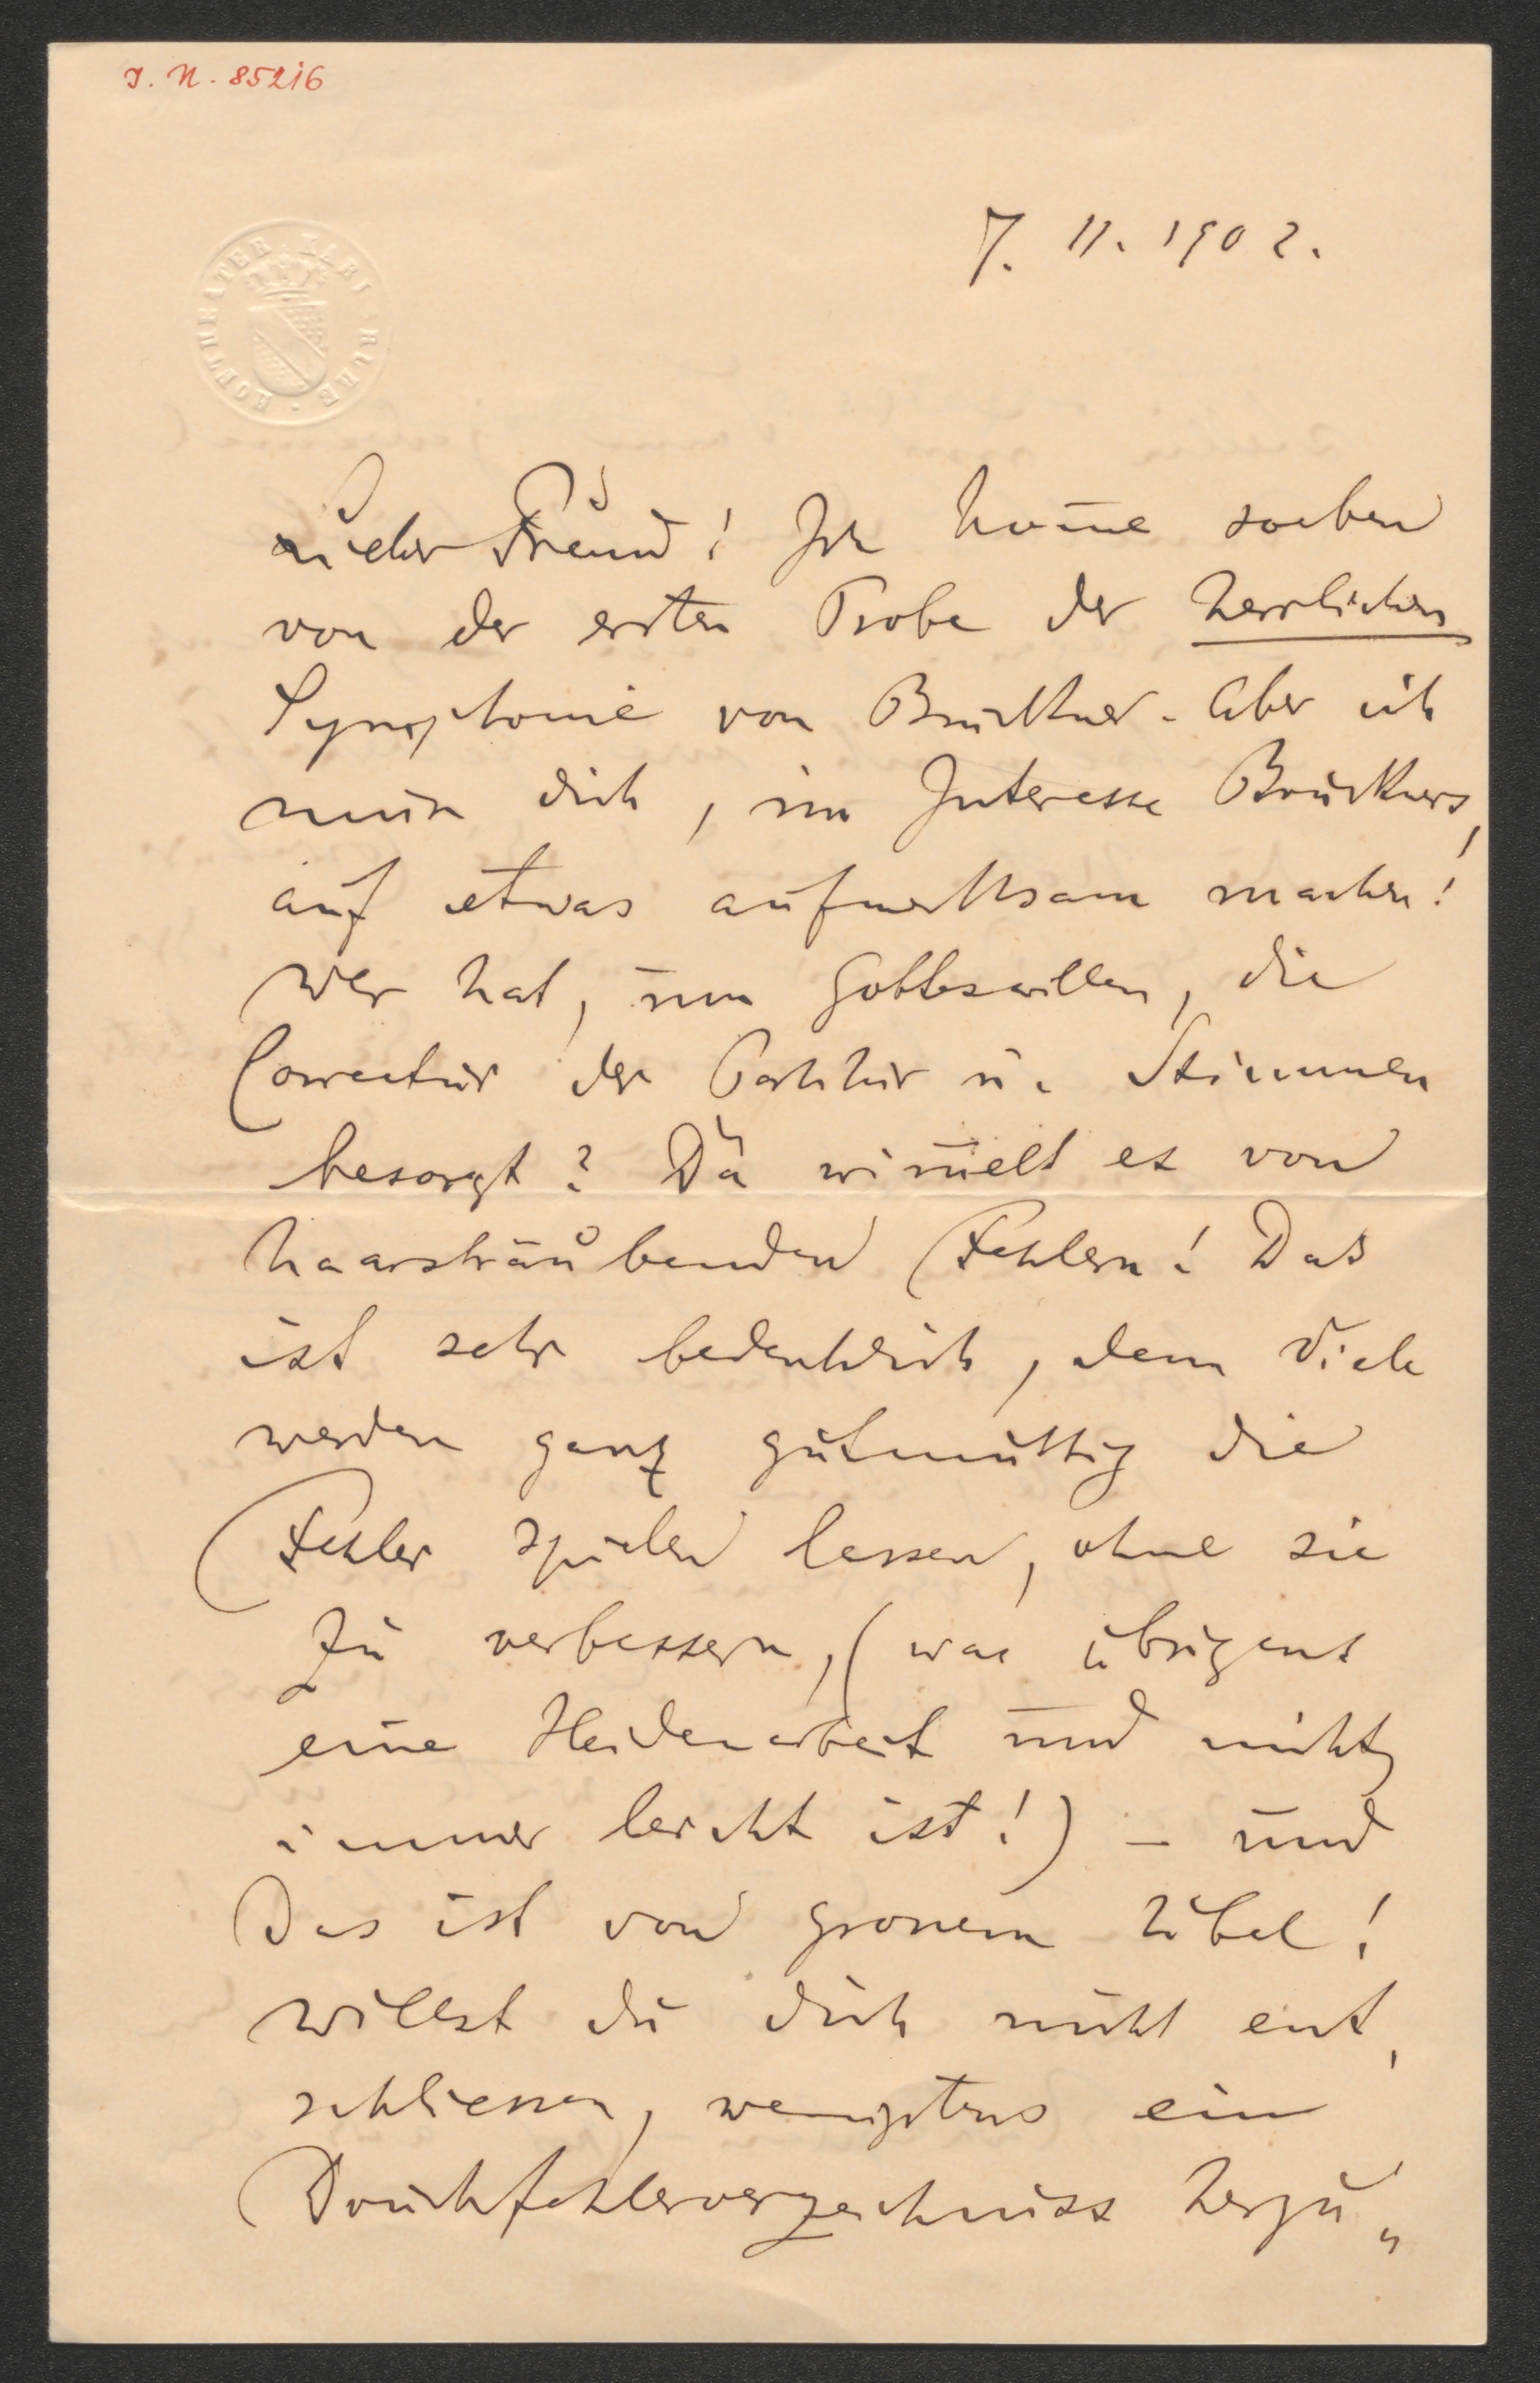 J. N. 85216
HOFTHEATER KARLSRUHE
7. 11. 1902.
Lieber Freund! Ich kom̄e soeben
von der ersten Probe der herrlichen
Symphonie von Bruckner. Aber ich
muss dich, im Interesse Bruckners,
auf etwas aufmerksam machen!
Wer hat, um Gotteswillen, die
Correctur der Partitur u. Stimmen
besorgt? Da wim̄elt es von
haarsträubenden Fehlern! Das
ist sehr bedenklich, denn Viele
werden ganz gutmüttig die
Fehler spielen lassen, ohne sie
zu verbessern, (was übrigens
eine Heidenarbeit und nicht
immer leicht ist!) – und
Das ist von grossem Übel!
Willst du dich nicht ent-
schliessen, wenigstens ein
Druckfehlerverzeichniss herzu„